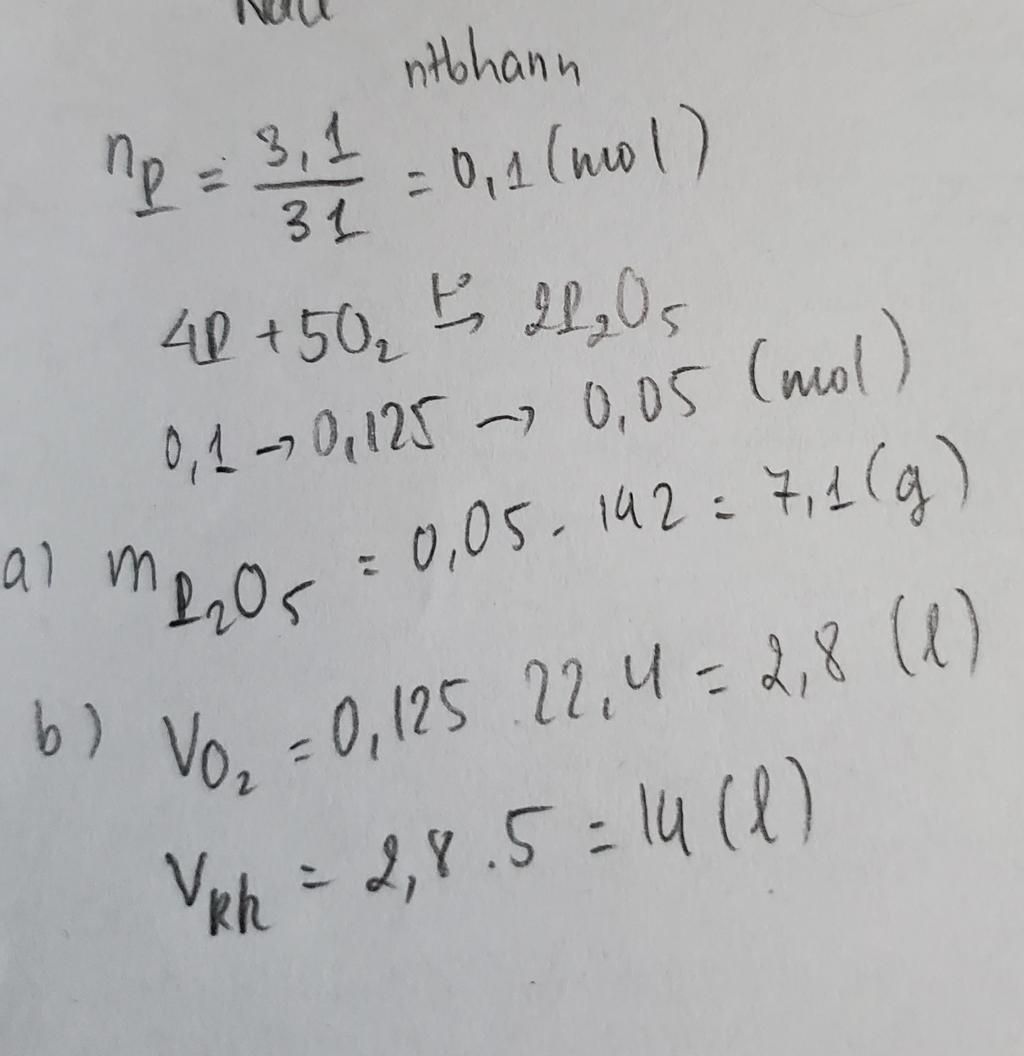 ntbhann
nP = 3,1/31 = 0,1 (mol)
4P + 5O2 t°→ 2P2O5
0,1 → 0,125 → 0,05 (mol)
a) mP2O5 = 0,05 . 142 = 7,1 (g)
b) VO2 = 0,125 . 22,4 = 2,8 (l)
Vkk = 2,8 . 5 = 14 (l)